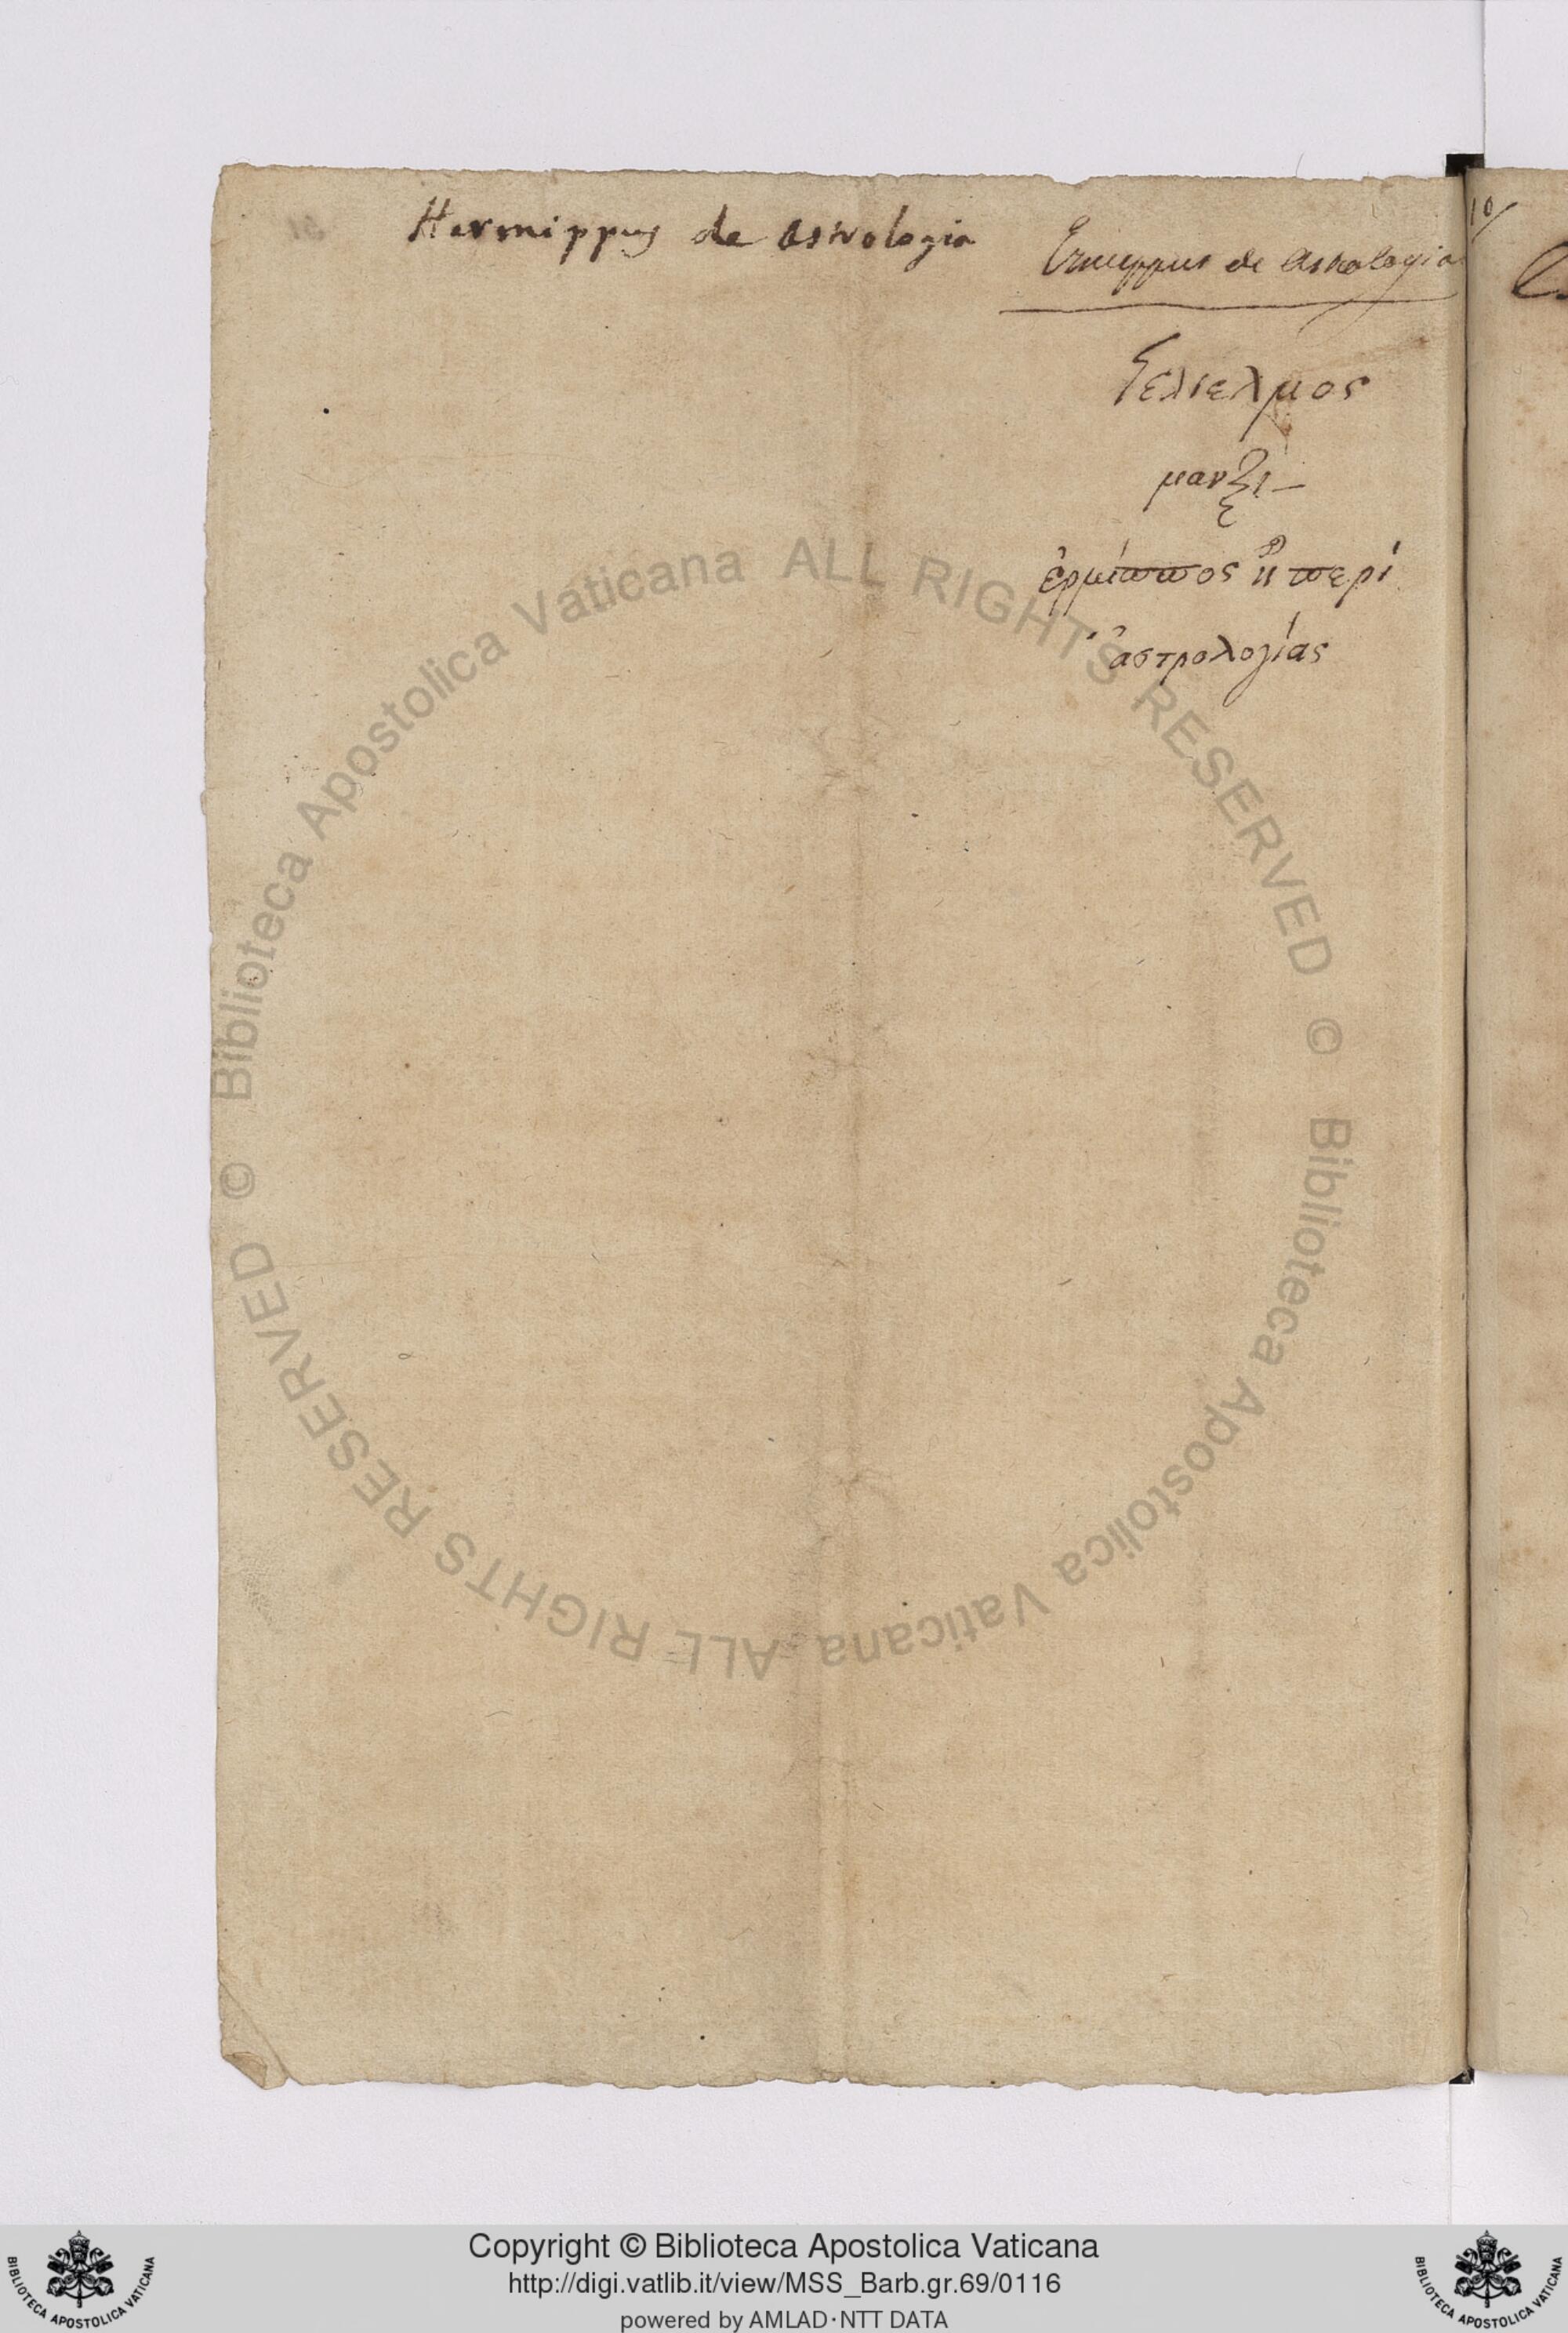 Hermippus de Astrologia
Ermippus de Astrologia
10
Γελιελμος
μανξι
ἑρμίππος ἢ περί
ἀστρολογίας
Biblioteca Apostolica Vaticana ALL RIGHTS RESERVED ©
Biblioteca Apostolica Vaticana ALL RIGHTS RESERVED ©
Copyright © Biblioteca Apostolica Vaticana
http://digi.vatlib.it/view/MSS_Barb.gr.69/0116
powered by AMLAD·NTT DATA
BIBLIOTECA APOSTOLICA VATICANA
BIBLIOTECA APOSTOLICA VATICANA